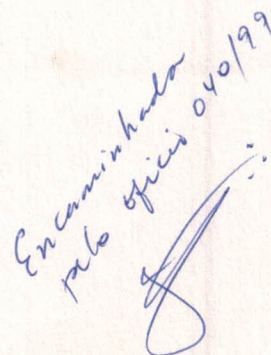 Encaminhada
pelo ofício 040/99